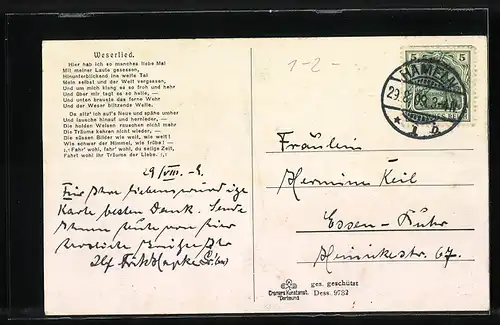 Weserlied.
Hier hab ich so manches liebe Mal
Mit meiner Laute gesessen,
Hinunterblickend ins weite Tal
Mein selbst und der Welt vergessen,
Und um mich klang es so froh und hehr
Und über mir tagt es so helle, —
Und unten brauste das ferne Wehr
Und der Weser blitzende Welle.
Da sitz' ich auf's Neue und spähe umher
Und lausche hinauf und hernieder, —
Die holden Weisen rauschen nicht mehr
Die Träume kehren nicht wieder, —
Die süssen Bilder wie weit, wie weit!
Wie schwer der Himmel, wie trübe! —
Fahr' wohl, fahr' wohl, du selige Zeit,
Fahrt wohl ihr Träume der Liebe.
29/VIII.
Für Ihre liebenswürdige
Karte besten Dank. Sende
Ihnen heute von hier
herzliche Grüße Ihr
1-2-
5 5
HAMELN
29.8.09
* 1 b
Fräulein
Hermine Keil
Essen-Ruhr
67.
Cramers Kunstanst.
Dortmund
ges. geschützt
Dess. 9732